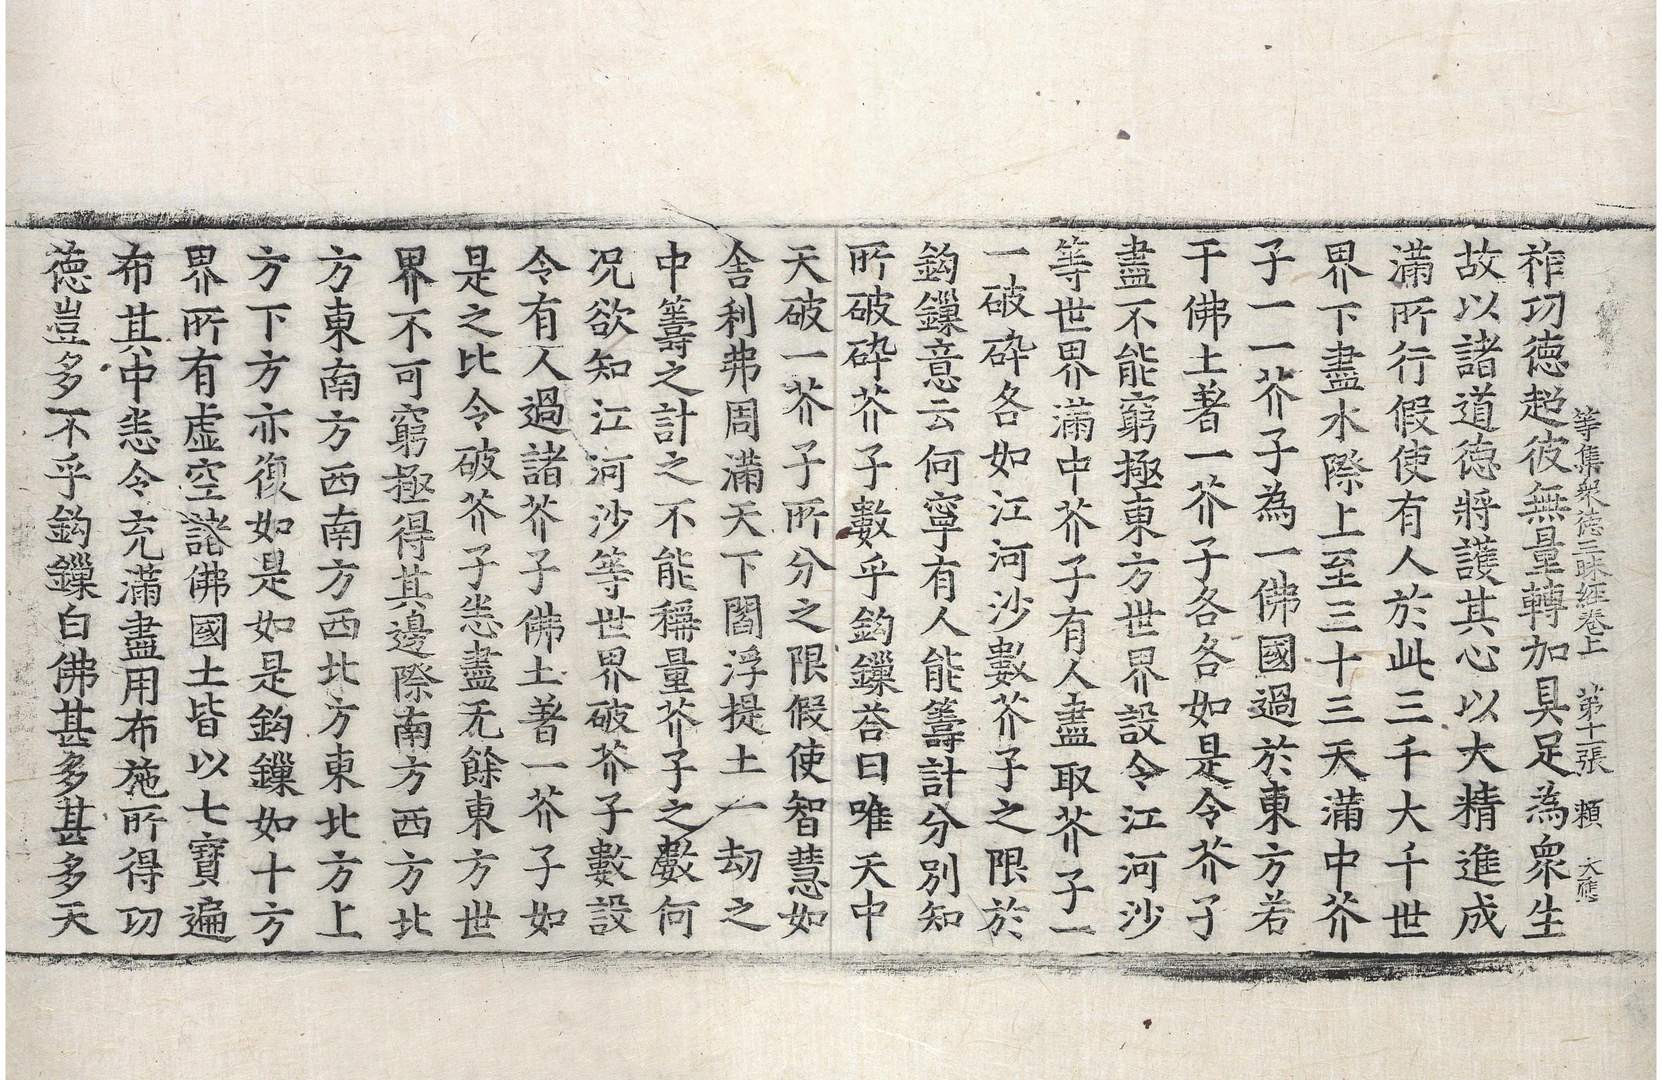 等集衆德三昧經卷上　第十一張　頼　大應
祚功德超彼無量轉加具足為衆生
故以諸道德將護其心以大精進成
滿所行假使有人於此三千大千世
界下盡水際上至三十三天滿中芥
子一一芥子為一佛國過於東方若
干佛土著一芥子各各如是令芥子
盡不能窮極東方世界設令江河沙
等世界滿中芥子有人盡取芥子一
一破碎各如江河沙數芥子之限於
鈎鏁意云何寧有人能籌計分別知
所破碎芥子數乎鈎鏁荅曰唯天中
天破一芥子所分之限假使智慧如
舎利弗周滿天下閻浮提土一劫之
中籌之計之不能稱量芥子之數何
况欲知江河沙等世界破芥子數設
令有人過諸芥子佛土著一芥子如
是之比令破芥子悉盡无餘東方世
界不可窮極得其邊際南方西方北
方東南方西南方西北方東北方上
方下方亦復如是如是鈎鏁如十方
界所有虛空諸佛國土皆以七寶遍
布其中悉令充滿盡用布施所得功
德豈多不乎鈎鏁白佛甚多甚多天